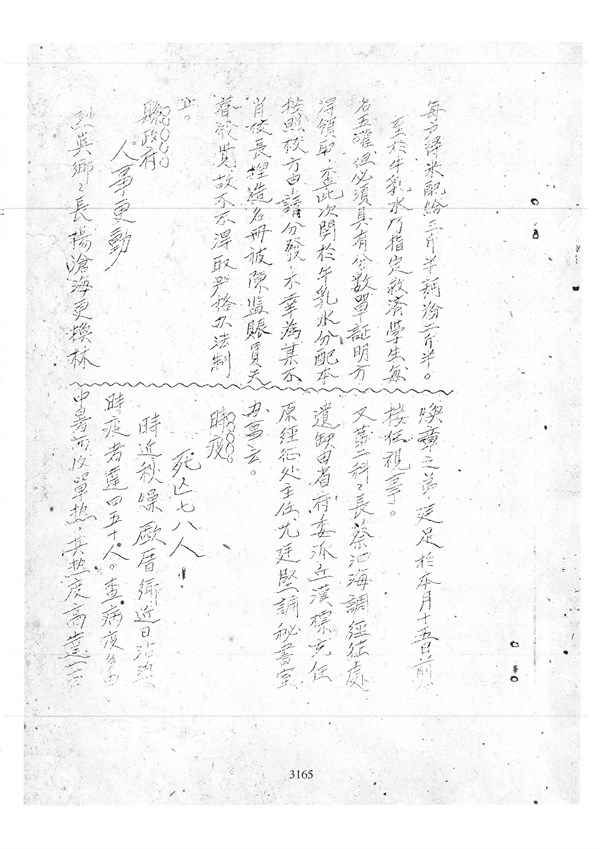 每戶得米配給三斤半麵粉二斤半。
至於牛乳水乃指定救済學生每
名五罐但必須具有分数單証明方
得領取,至此次関於牛乳水分配本
按照校方申請分發,不幸為某不
肖校長捏造名冊被陳監賬買天
督發覚故不不得取严格办法制
止。
縣政府
人事更動
烈英鄉々長楊滄海更換林
煥章之弟,廷足於本月十五日前
接任視事。
又第二科々長蔡泗海調經征處
遺缺由省府委派丘漢標充任
原經征处主任尤廷壂調秘書室
办事云。
時疫
死亡七八人
時近秋燥歐厝鄉近日沾染
時疫者達四五十人。查病疫多由
中暑而及單热,其热度高達一百
3165